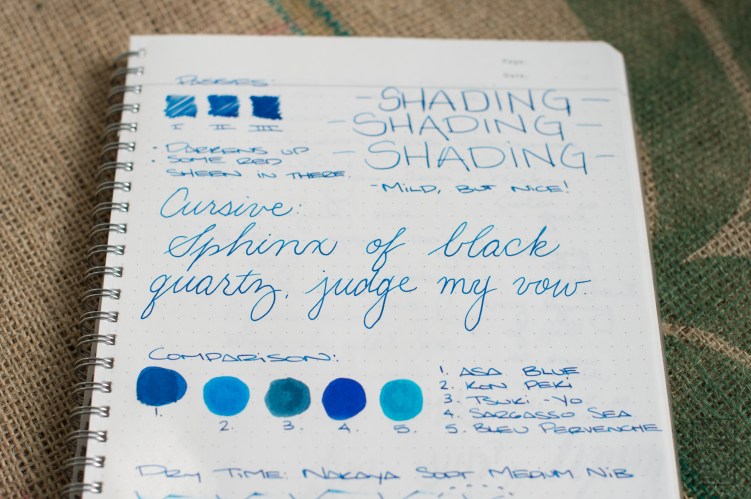 Page.
Date.
Passes:
I II III
• Darkens up
• Some red
sheen in there.
- SHADING -
- SHADING -
- SHADING -
- Mild, but nice!
Cursive:
Sphinx of black
quartz, judge my vow.
Comparison:
1. 2. 3. 4. 5.
1. Asa Blue
2. Kon Peki
3. Tsuki-Yo
4. Sargasso Sea
5. Bleu Pervenche
Dry Time: Nakaya Soft Medium Nib